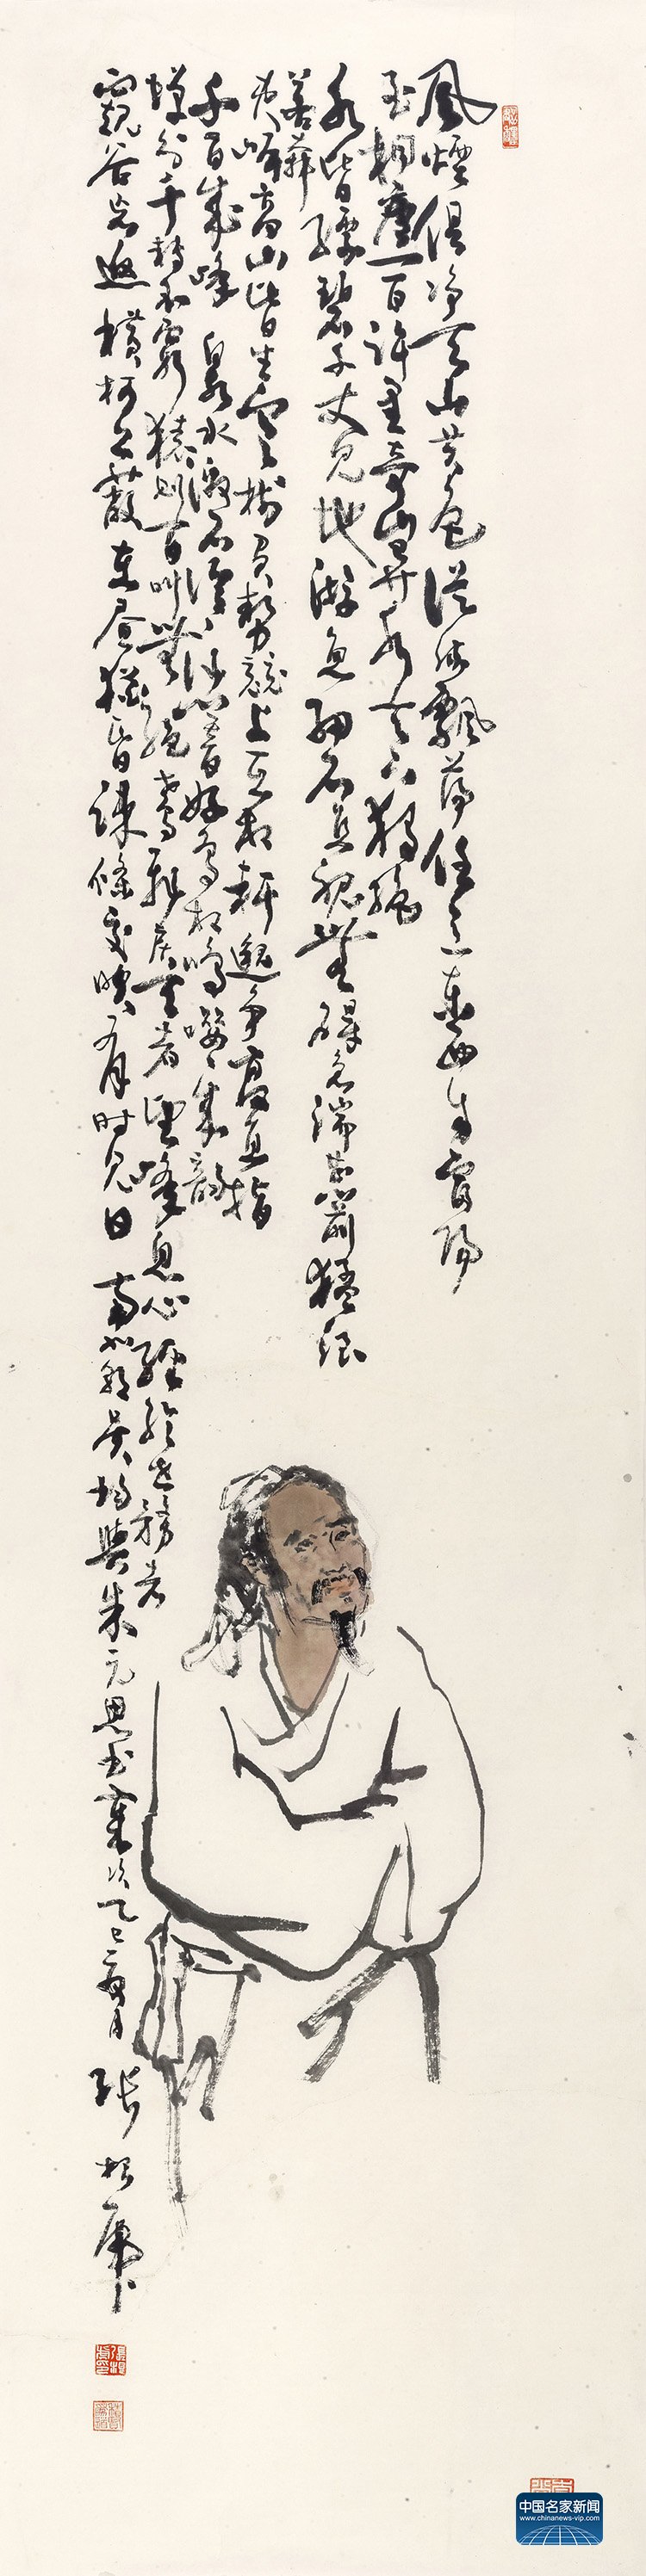 風煙俱淨天山共色從流飄蕩任意東西自富陽
至桐廬一百許里奇山異水天下獨絕
水皆縹碧千丈見地游魚細石直視無礙急湍甚箭猛浪
若奔
夾峰高山皆生寒樹負勢競上互相軒邈爭高直指
千百成峰泉水激石泠泠作響好鳥相鳴嚶嚶成韻
蟬則千轉不窮猿則百叫無絕鳶飛戾天者望峰息心經綸世務者
窺谷忘返橫柯上蔽在晝猶昏疎條交映有时見日 南北朝吳均與朱元思书 歲次乙巳夏月 張根虎
中国名家新闻
www.chinanews-vip.com